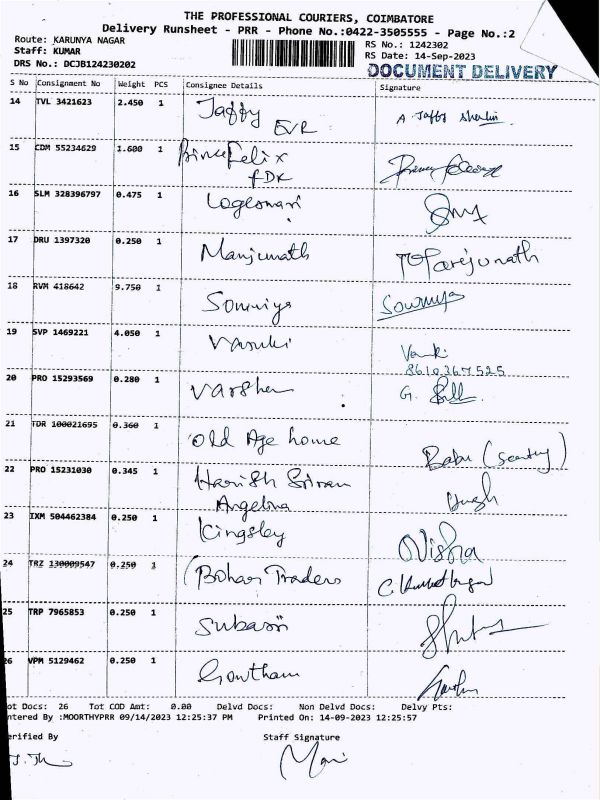 THE PROFESSIONAL COURIERS, COIMBATORE
Delivery Runsheet - PRR - Phone No.:0422-3505555 - Page No.:2
Route: KARUNYA NAGAR
RS No.: 1242302
Staff: KUMAR
RS Date: 14-Sep-2023
DRS No.: DCJB124230202
DOCUMENT DELIVERY
S No Consignment No Weight PCS Consignee Details Signature
14 TVL 3421623 2.450 1 Jaffy EVR A. Jaffy Sherlin
15 CDM 55234629 1.600 1 Felix
16 SLM 328396797 0.475 1 Logeswari
17 DRU 1397320 0.250 1 Manjunath
18 RVM 418642 9.750 1 Sowmiya Sowmya
19 SVP 1469221 4.050 1 Vasuki
8610367525
20 PRO 15293569 0.280 1 Varshen G.
21 TDR 100021695 0.360 1 Old Age home Babu
22 PRO 15231030 0.345 1 Harish
Angelina
23 IXM 504462384 0.250 1 Kingsley
24 TRZ 130009547 0.250 1 Traders
25 TRP 7965853 0.250 1
26 VPM 5129462 0.250 1 Gowtham
ot Docs: 26 Tot COD Amt: 0.00 Delvd Docs: Non Delvd Docs: Delvy Pts:
ntered By :MOORTHYPRR 09/14/2023 12:25:37 PM Printed On: 14-09-2023 12:25:57
erified By Staff Signature
Mani